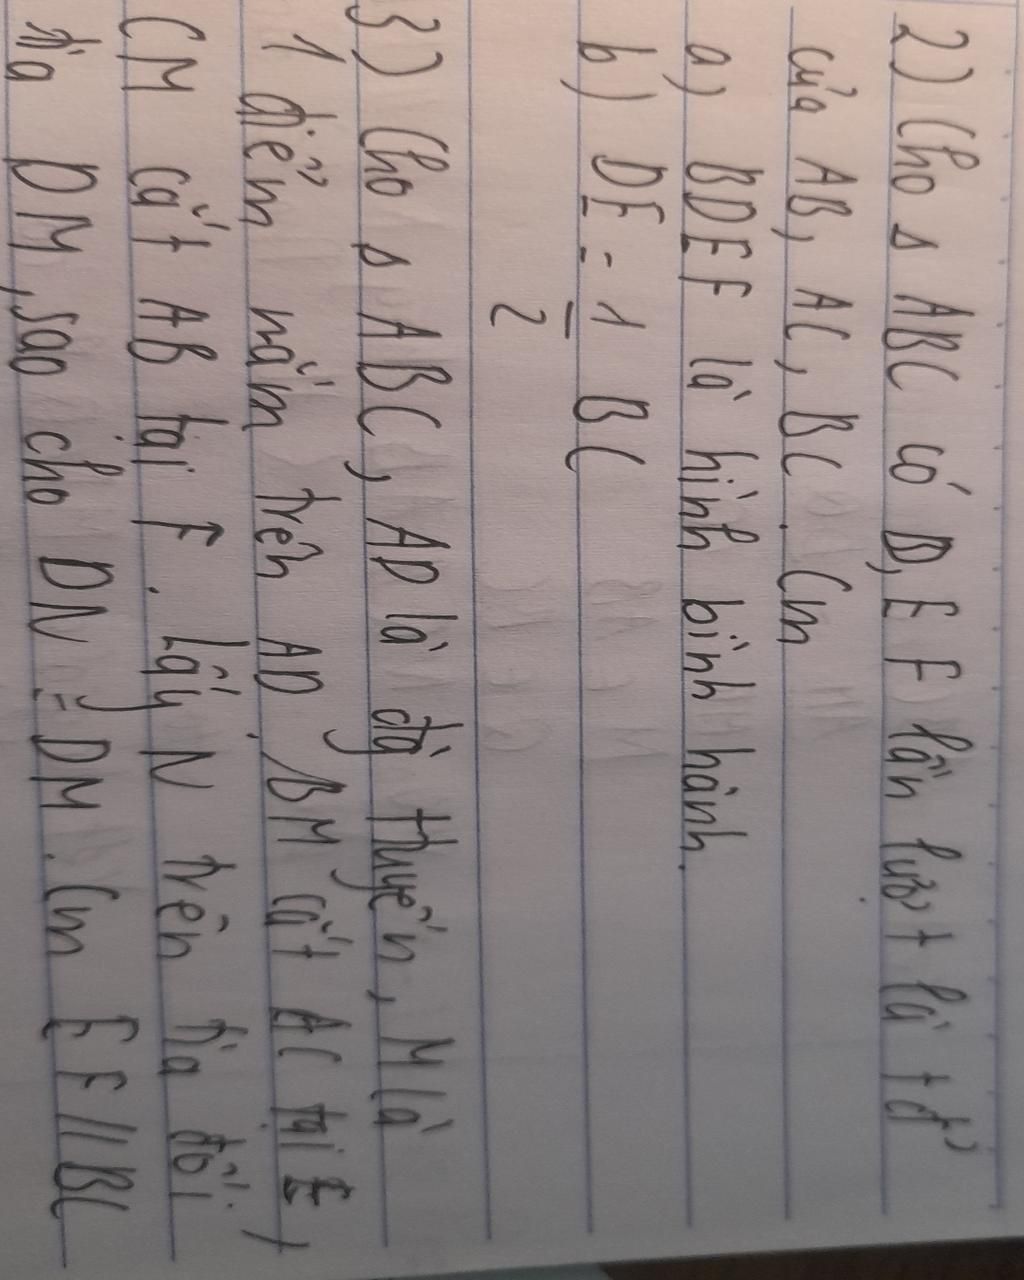 2) Cho Δ ABC có D, E F lần lượt là tđ'
của AB, AC, BC. Cm
a) BDEF là hình bình hành.
b) DE = 1/2 BC
3) Cho Δ ABC, AD là đg thuyến, M là
1 điểm nằm trên AD. BM cắt AC tại E,
CM cắt AB tại F. Lấy N trên tia đối
tia DM, sao cho DN = DM. Cm EF // BC